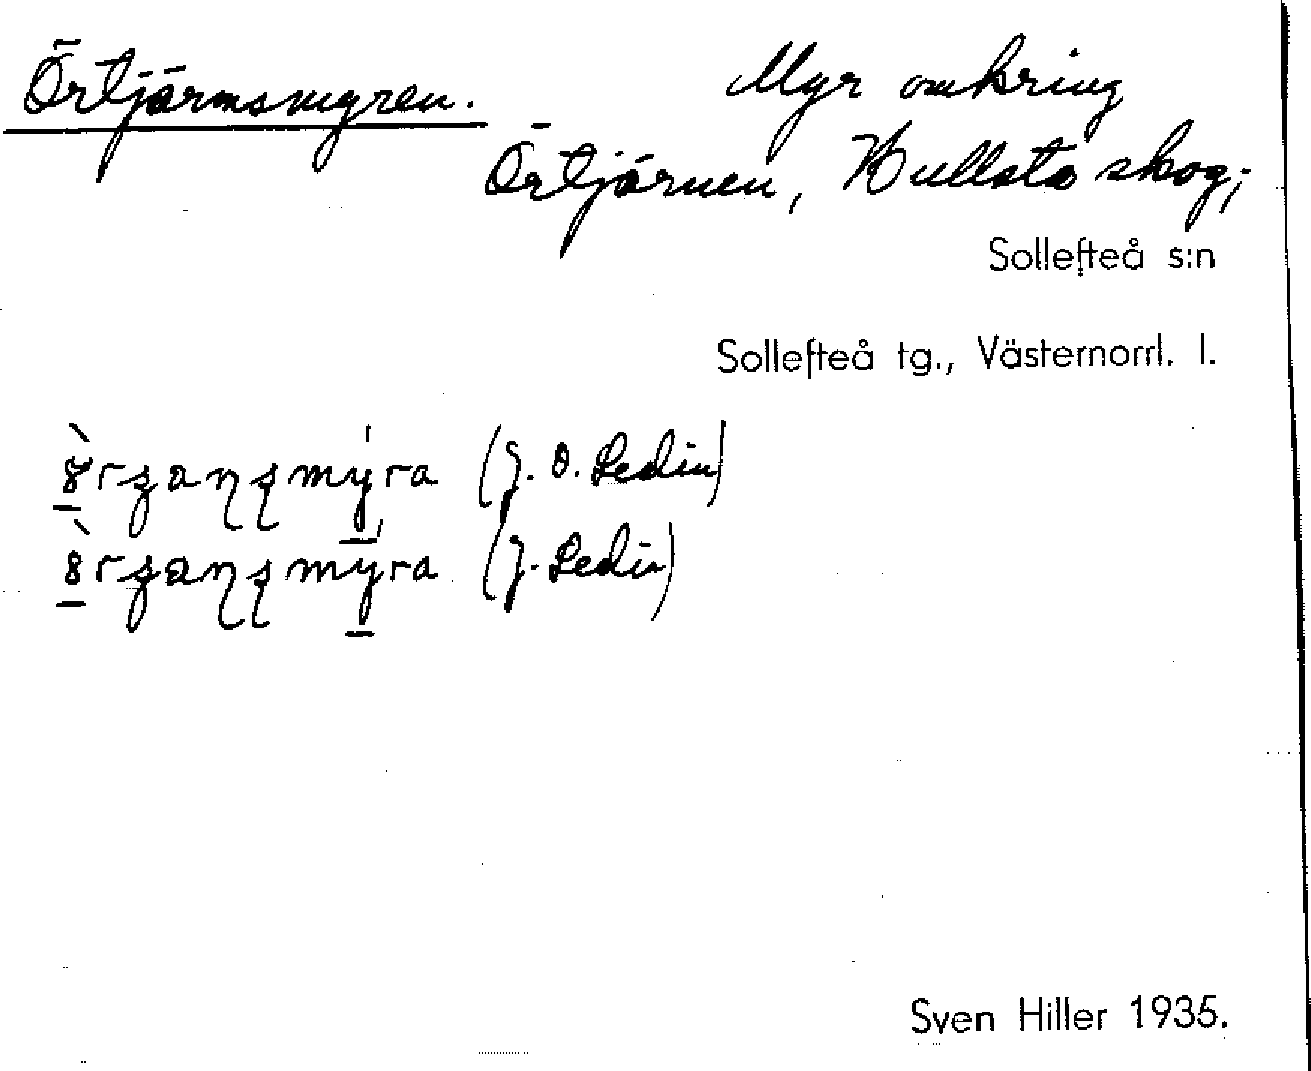 Örtjärnsmyren. Myr omkring
Örtjärnen, Hullsta skog;
Sollefteå s:n
Sollefteå tg., Västernorrl. l.
(J. O. Sedin)
(J. Sedin)
Sven Hiller 1935.